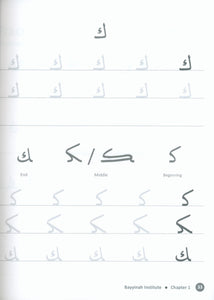 ك
ك ك ك ك ك
ك ك ك ك ك
كـ ـكـ / ـكـ ـك
End Middle Beginning
كـ كـ كـ كـ كـ
ـكـ ـكـ ـكـ ـكـ ـكـ
ـك ـك ـك ـك ـك
Bayyinah Institute • Chapter 1